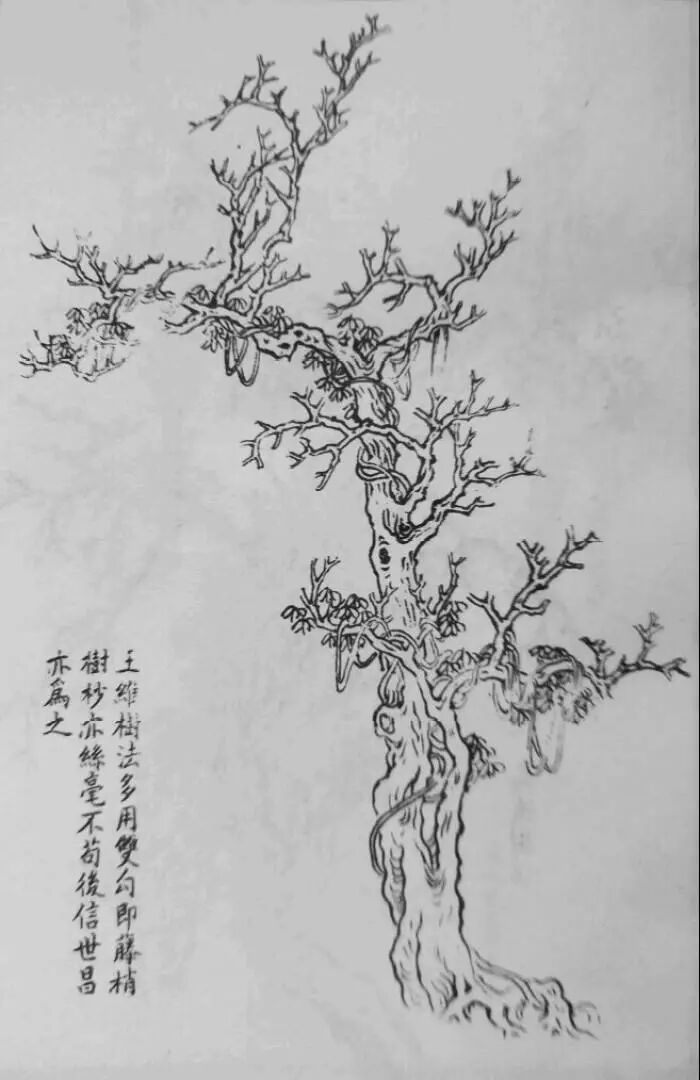 王維樹法多用雙勾即藤梢
樹杪亦絲毫不苟後信世昌
亦爲之